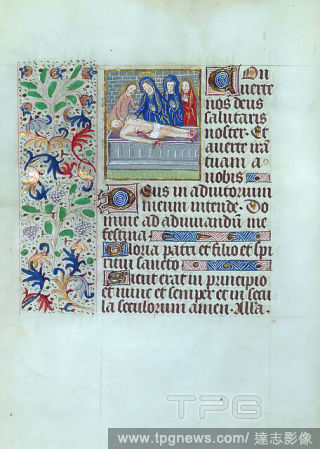 Con
uerte
nos deus
salutaris
noster. Et
auerte irā
tuam a
nobis
Deus in adiutorium
meum intende. Do
mine ad adiuuandū me
festina.
Gloria patri et filio et spi
ritui sancto
Sicut erat in principio
et nunc et semper et in secu
la seculorum amen. Alla.
TPG
www.tpgnews.com/ 達志影像